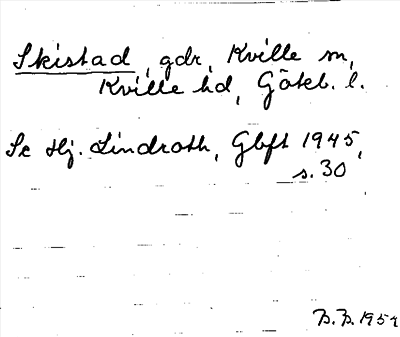 Skistad, gdr, Kville sn,
Kville hd, Göteb. l.
Se Hj. Lindroth, Gbft 1945,
s. 30